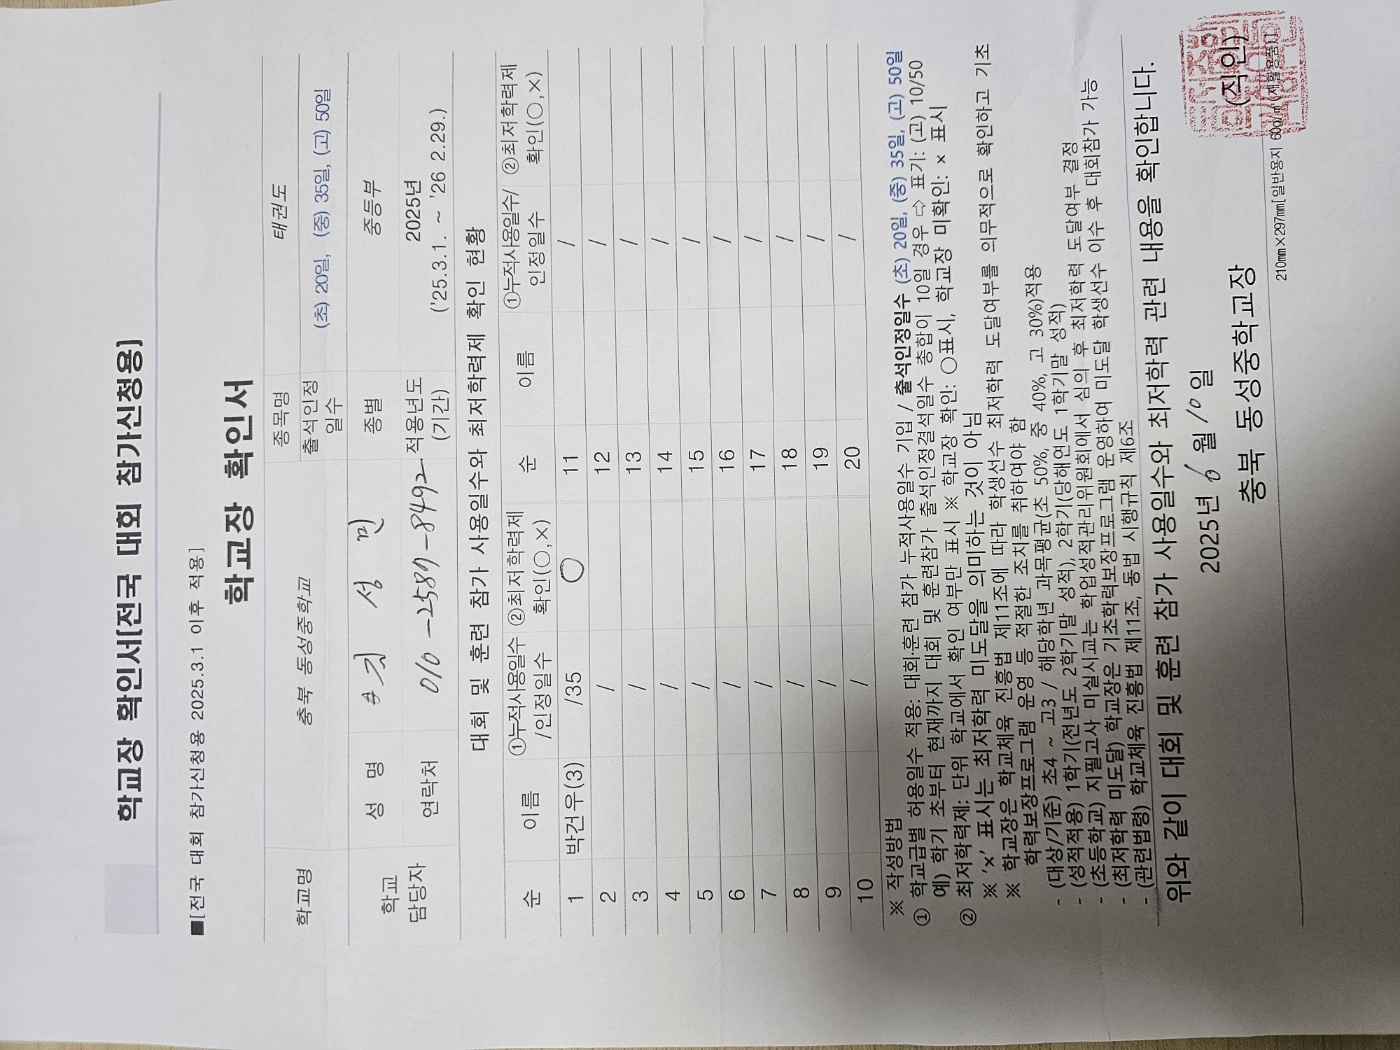 학교장 확인서[전국 대회 참가신청용]
■[전국 대회 참가신청용 2025.3.1 이후 적용]
학교장 확인서
학교명 충북 동성중학교 종목명 태권도
출석인정일수 (초) 20일, (중) 35일, (고) 50일
학교 담당자 성 명 성 민 종별 중등부
연락처 010-2589-8492 적용년도(기간) 2025년 ('25.3.1. ~ '26 2.29.)
대회 및 훈련 참가 사용일수와 최저학력제 확인 현황
순 이름 ①누적사용일수/인정일수 ②최저학력제 확인(○,×) 순 이름 ①누적사용일수/인정일수 ②최저학력제 확인(○,×)
1 박건우(3) /35 ○ 11 /
2 / 12 /
3 / 13 /
4 / 14 /
5 / 15 /
6 / 16 /
7 / 17 /
8 / 18 /
9 / 19 /
10 / 20 /
※ 작성방법
① 학교급별 허용일수 적용: 대회·훈련 참가 누적사용일수 기입 / 출석인정일수 (초) 20일, (중) 35일, (고) 50일
예) 학기 초부터 현재까지 대회 및 훈련참가 출석인정결석일수 총합이 10일 경우 ⇨ 표기: (고) 10/50
② 최저학력제: 단위 학교에서 확인 여부만 표시 ※ 학교장 확인: ○표시, 학교장 미확인: × 표시
※ '×' 표시는 최저학력 미도달을 의미하는 것이 아님
※ 학교장은 학교체육 진흥법 제11조에 따라 학생선수 최저학력 도달여부를 의무적으로 확인하고 기초
학력보장프로그램 운영 등 적절한 조치를 취하여야 함
- (대상/기준) 초4 ~ 고3 / 해당학년 과목평균(초 50%, 중 40%, 고 30%)적용
- (성적적용) 1학기(전년도 2학기말 성적), 2학기(당해연도 1학기말 성적)
- (초등학교) 지필고사 미실시교는 학업성적관리위원회에서 심의 후 최저학력 도달여부 결정
- (최저학력 미도달) 학교장은 기초학력보장프로그램 운영하여 미도달 학생선수 이수 후 대회참가 가능
- (관련법령) 학교체육 진흥법 제11조, 동법 시행규칙 제6조
위와 같이 대회 및 훈련 참가 사용일수와 최저학력 관련 내용을 확인합니다.
2025년 6 월 10 일
충북 동성중학교장 (직인)
210㎜×297㎜[일반용지 60g/㎡(재활용품)]